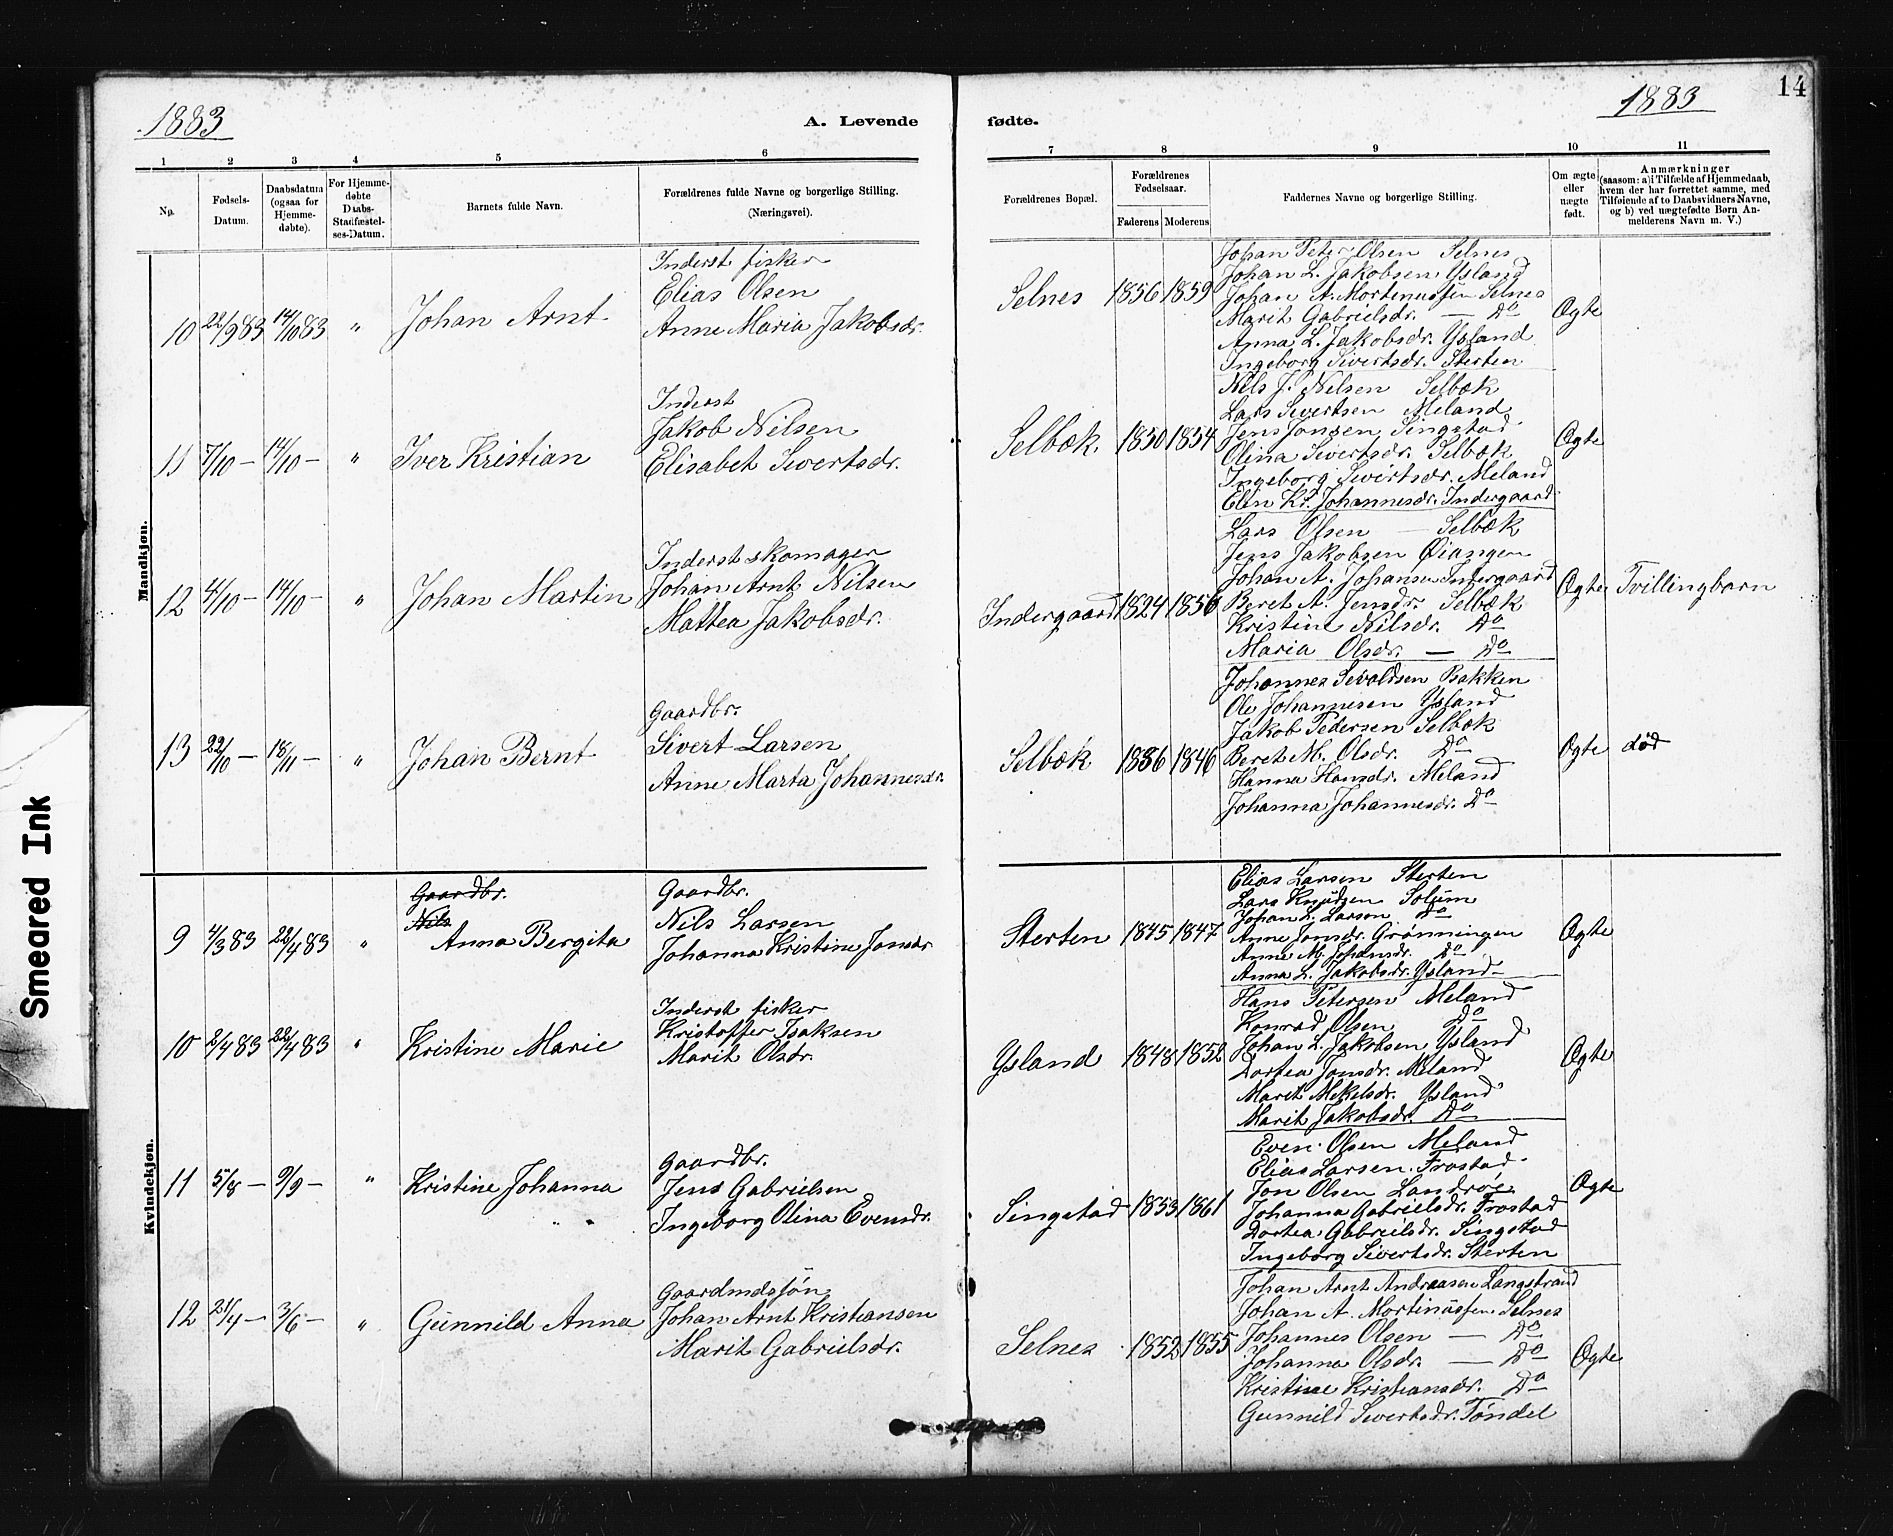 14
1883
A. Levende
fødte.
1883
1 2 3 4 5 6
7 8 9 10 11
Np.
Fødsels-
Datum.
Daabsdatum
(ogsaa for
Hjemme-
døbte).
For Hjemme-
døbte
Daabs-
Stadfæstel-
ses-Datum.
Barnets fulde Navn.
Forældrenes fulde Navne og borgerlige Stilling.
(Næringsvei).
Forældrenes Bopæl.
Forældrenes
Fødselsaar.
Faderens Moderens
Faddernes Navne og borgerlige Stilling.
Om ægte
eller
uægte
født.
Anmærkninger
(saasom: a) i Tilfælde af Hjemmedaab,
hvem der har forrettet samme, med
Tilføiende af to Daabsvidners Navne,
og b) ved uægtefødte Børn An-
melderens Navn m. V.)
Mandkjøn.
10 22/9 83 14/10 83 " Johan Arnt
Inderst fisker
Elias Olsen
Anne Maria Jakobsdr.
Selnes 1856 1859
Johan Peter Olsen Selnes
Johan L. Jakobsen Ysland
Johan A. Mortenussen Selnes
Marit Gabrielsdr. — Do
Anna L. Jakobsdr. Ysland
Ingeborg Sivertsdr. Sterten
Ægte
11 7/10 — 14/10 — " Iver Kristian
Inderst
Jakob Nilsen
Elisabet Sivertsdr.
Selbæk. 1850 1854
Nils J. Nilsen Selbæk
Lars Sivertsen Meland
Jens Jonsen Singstad
Olina Sivertsdr. Selbæk
Ingeborg Sivertsdr. Meland
Elen Kr. Johannesdr. Indergaard
Ægte
12 4/10 — 14/10 — " Johan Martin
Inderst skomager
Johan Arnt Nilsen
Mattea Jakobsdr.
Indergaard 1824 1856
Lars Olsen — Selbæk
Jens Jakobsen Øiangen
Johan A. Johansen Indergaard
Beret A. Jensdr. Selbæk
Kristine Nilsdr. Do
Maria Olsdr. — Do
Ægte Tvillingbarn
13 22/10 — 18/11 — " Johan Bernt
Gaardbr.
Sivert Larsen
Anne Marta Johannesdr.
Selbæk 1836 1846
Johannes Sivaldsen Bakken
Ole Johannesen Ysland
Jakob Pedersen Selbæk
Beret M. Olsdr. Do
Hanna Hansdr. Meland
Johanna Johannesdr. Do
Ægte død
Kvindekjøn.
Gaardbr.
Nils
9 4/3 83 22/4 83 " Anna Bergita
Gaardbr.
Nils Larsen
Johanna Kristine Jonsdr.
Sterten 1845 1847
Elias Larsen Sterten
Lars Knudsen Solum
Johan L. Larsen Do
Anne Jonsdr. Grønningen
Anne M. Johansdr. Do
Anna L. Jakobsdr. Ysland
Ægte
10 2/4 83 22/4 83 " Kristine Marie
Inderst fisker
Kristoffer Isaksen
Marit Olsdr.
Ysland 1848 1852
Hans Petersen Meland
Konrad Olsen Do
Johan L. Jakobsen Ysland
Dortea Jonsdr. Meland
Marit Mekelsdr. Ysland
Marit Jakobsdr. Do
Ægte
11 5/8 — 9/9 — " Kristine Johanna
Gaardbr.
Jens Gabrielsen
Ingeborg Olina Evensdr.
Singstad 1853 1861
Even Olsen Meland
Elias Larsen Frostad
Jon Olsen Landrøe
Johanna Gabrielsdr. Frostad
Dortea Gabrielsdr. Singstad
Ingeborg Sivertsdr. Sterten
Ægte
12 21/4 — 3/6 — " Gunnild Anna
Gaardmdssøn
Johan Arnt Kristiansen
Marit Gabrielsdr.
Selnes 1852 1855
Johan Arnt Andreasen Langstrand
Johan A. Mortinussen Selnes
Johannes Olsen — Do
Johanna Olsdr. — Do
Kristine Kristiansdr. Do
Gunnild Sivertsdr. Tøndel
Ægte
Smeared Ink